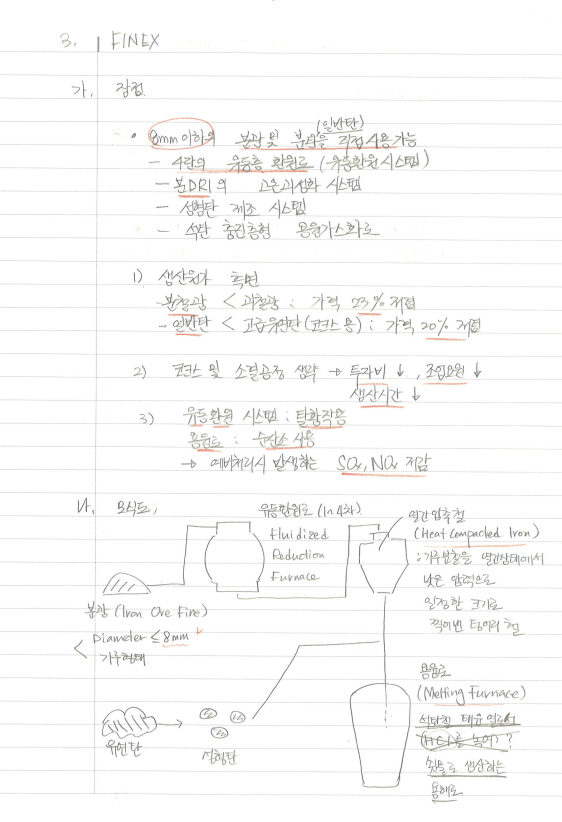 3. FINEX
가. 장점
(일반탄)
• 8mm이하의 분광 및 분탄을 직접사용가능
- 4단의 유동층 환원로 (유동환원시스템)
- 분DRI의 고온괴성화 시스템
- 성형탄 제조 시스템
- 석탄 충진층형 용융가스화로
1) 생산원가 측면
- 분철광 < 괴철광 : 가격 23% 저렴
- 일반탄 < 고급유연탄(코크스용) : 가격 20% 저렴
2) 코크스 및 소결공정 생략 → 투자비 ↓, 조업요원 ↓
생산시간 ↓
3) 유동환원 시스템 : 탈황작용
용융로 : 순산소 사용
→ 예비처리시 발생하는 SOx, NOx 저감
나. 모식도
유동환원로 (1~4차)
Fluidized
Reduction
Furnace
열간압축철
(Heat Compacted Iron)
: 가루분철을 열간상태에서
낮은 압력으로
일정한 크기로
찍어낸 덩어리 철
분광 (Iron Ore Fine)
< Diameter ≤ 8mm
가루형태
유연탄
성형탄
용융로
(Melting Furnace)
석탄을 태운 열로서
(HCI)를 녹여 ?
쇳물로 생산하는
용해로